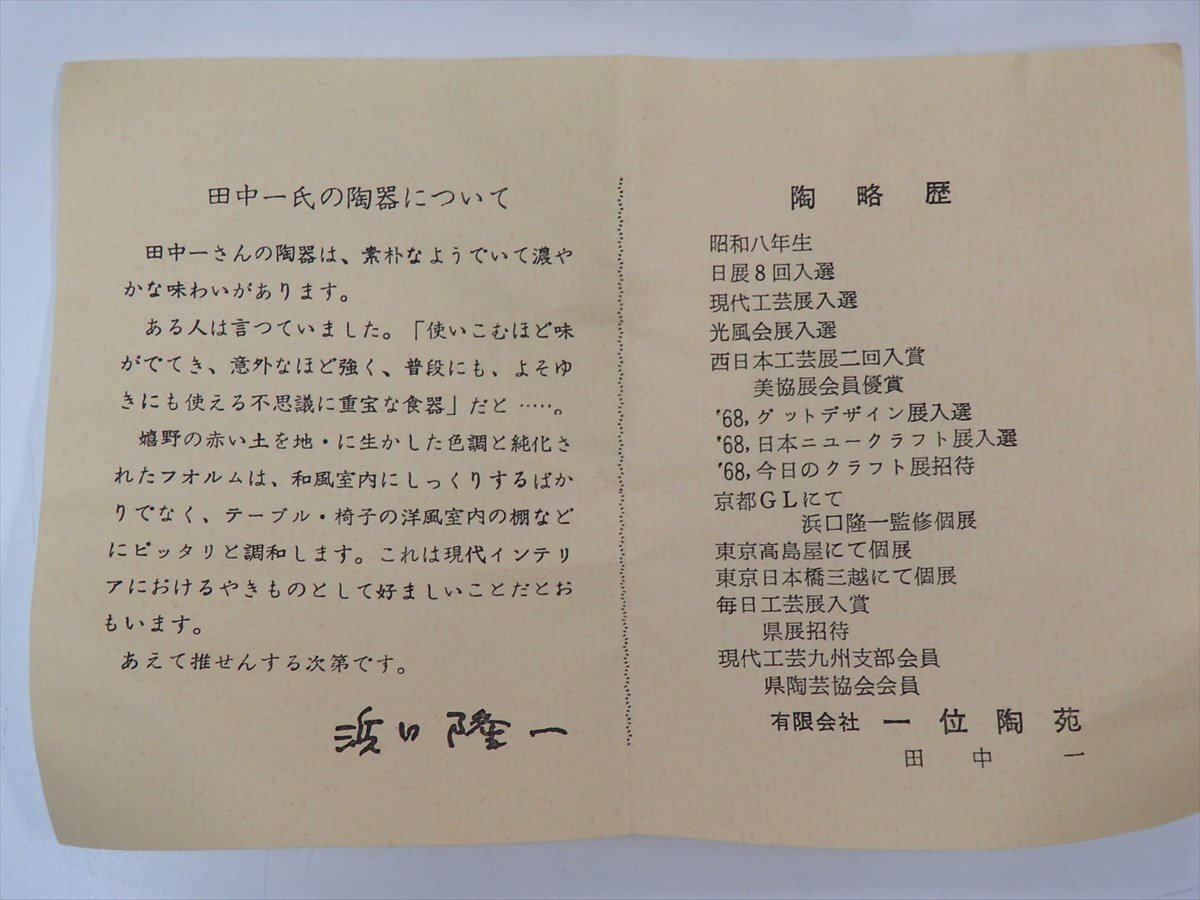 田中一氏の陶器について
田中一さんの陶器は、素朴なようでいて濃や
かな味わいがあります。
ある人は言つていました。「使いこむほど味
がでてき、意外なほど強く、普段にも、よそゆ
きにも使える不思議に重宝な食器」だと……。
嬉野の赤い土を地・に生かした色調と純化さ
れたフオルムは、和風室内にしっくりするばか
りでなく、テーブル・椅子の洋風室内の棚など
にピッタリと調和します。これは現代インテリ
アにおけるやきものとして好ましいことだとお
もいます。
あえて推せんする次第です。
浜口隆一
陶略歴
昭和八年生
日展8回入選
現代工芸展入選
光風会展入選
西日本工芸展二回入賞
美協展会員優賞
'68,グットデザイン展入選
'68,日本ニュークラフト展入選
'68,今日のクラフト展招待
京都GLにて
浜口隆一監修個展
東京高島屋にて個展
東京日本橋三越にて個展
毎日工芸展入賞
県展招待
現代工芸九州支部会員
県陶芸協会会員
有限会社 一位陶苑
田中一